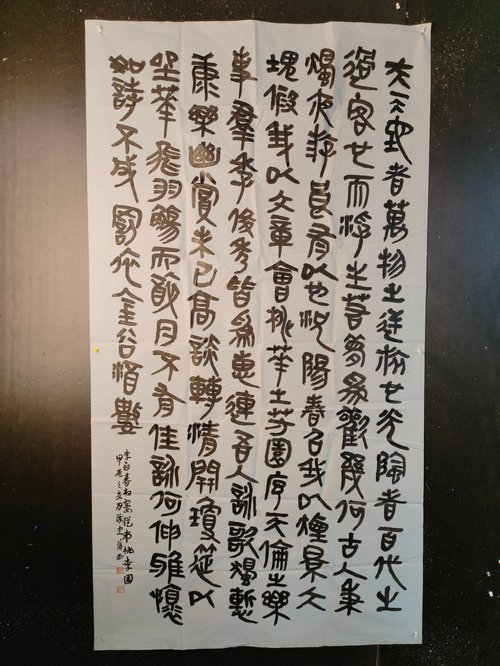 夫天地者萬物之逆旅也光陰者百代之
過客也而浮生若夢為歡幾何古人秉
燭夜遊良有以也況陽春召我以煙景大
塊假我以文章會桃華之芳園序天倫之樂
事羣季俊秀皆為惠連吾人詠歌獨慙
康樂幽賞未已高談轉清開瓊筵以
坐華飛羽觴而醉月不有佳詠何伸雅懷
如詩不成罰依金谷酒數
李白春夜宴從弟桃李園
甲辰之